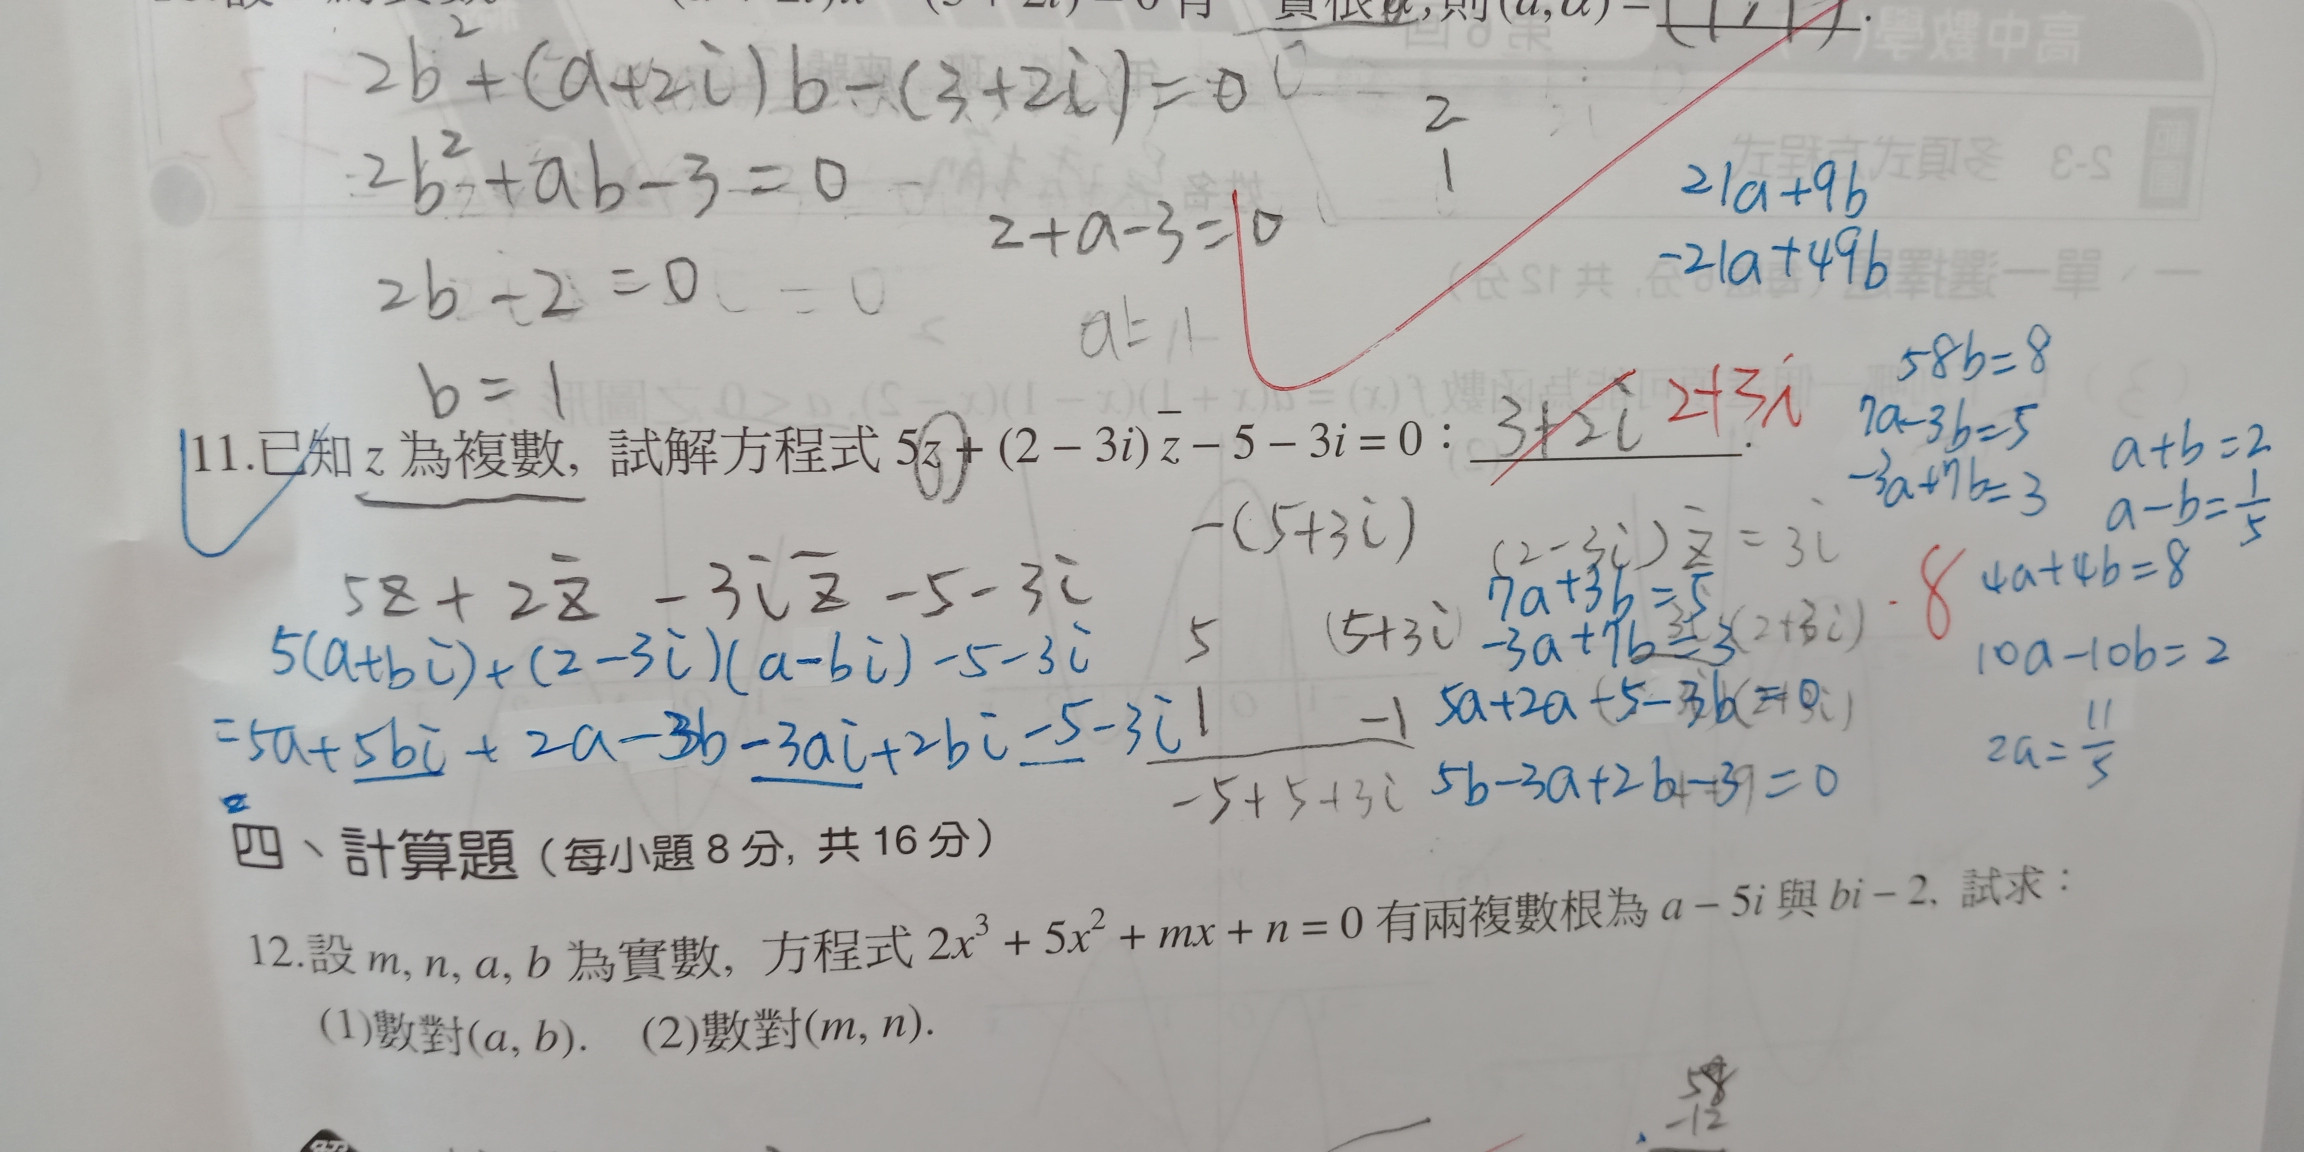 實根α,則(a, α) = (1, 1).
2b²+(a+2i)b-(3+2i)=0
2b²+ab-3=0
2b-2=0
b=1
2+a-3=0
a=1
2
1
21a+9b
-21a+49b
58b=8
7a-3b=5
-3a+7b=3
a+b=2
a-b=1/5
4a+4b=8
10a-10b=2
2a=11/5
11.已知 z 為複數, 試解方程式 5z + (2 − 3i) z̄ − 5 − 3i = 0 : 3+2i 2+3i
-(5+3i)
(2-3i)z̄=3i
5z+2z̄-3iz̄-5-3i
7a+3b=5
-3a+7b=3
(2+3i)
-8
5(a+bi)+(2-3i)(a-bi)-5-3i
5 (5+3i)
1 -1
-5+5+3i
=5a+5bi+2a-3b-3ai+2bi-5-3i
5a+2a+5-3b=0
5b-3a+2b-3=0
四、計算題（每小題 8 分, 共 16 分）
12.設 m, n, a, b 為實數, 方程式 2x³ + 5x² + mx + n = 0 有兩複數根為 a − 5i 與 bi − 2, 試求：
(1)數對(a, b). (2)數對(m, n).
58
-12